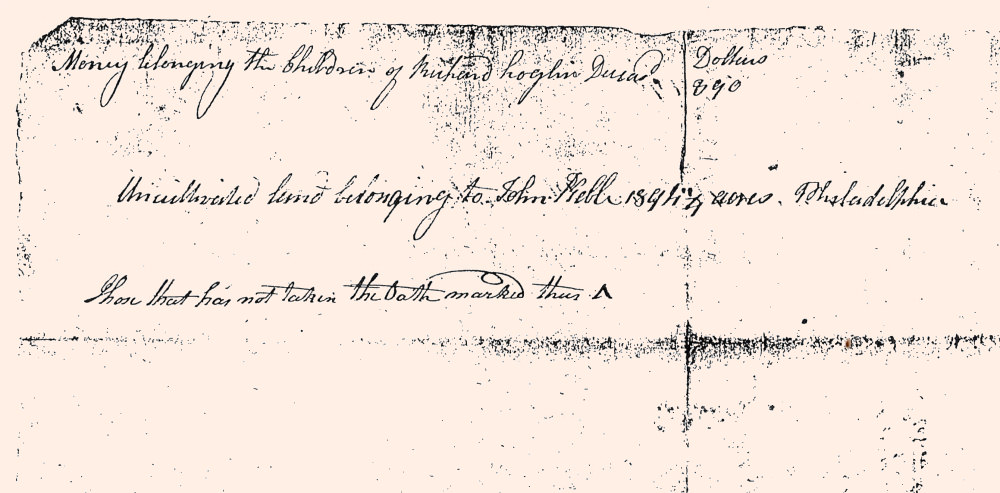 Money belonging the Children of Richard Decad. Dollars
890
Uncultivated land belonging to John Webb acres. Philadelphia
Those that has not taken the Oath marked thus Λ